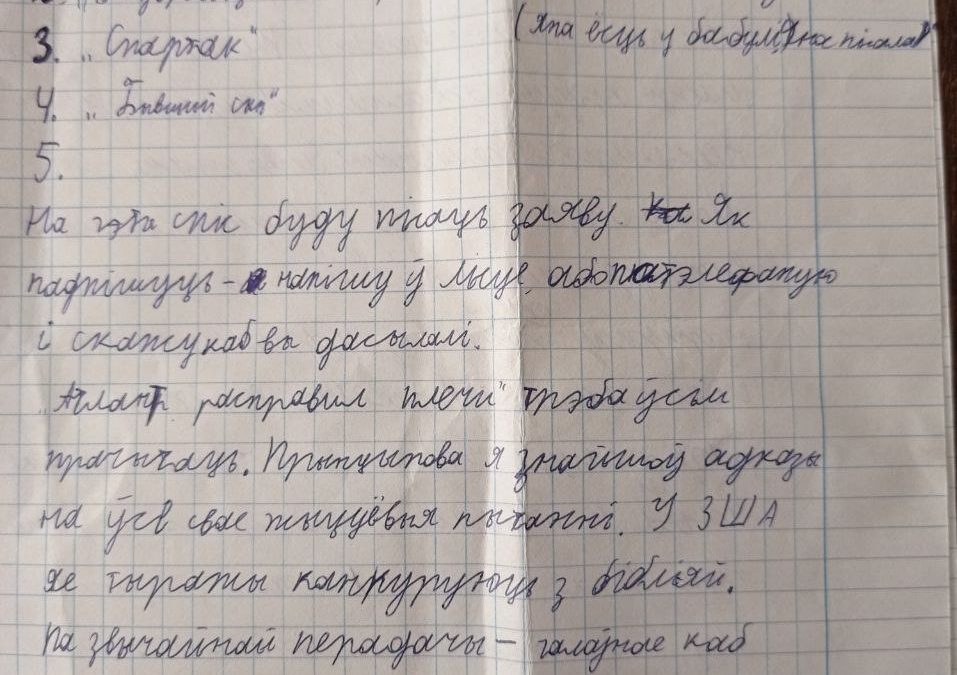 3. „Спартак" (Яна ёсць у бабулі)
4. „Бывший сын"
5.
На гэта спіс буду пісаць заяву. Як
падпішуць - напішу ў лісце, або патэлефаную
і скажу каб вы дасылалі.
„Атлант расправил плечи" трэба ўсім
прачытаць. Прынцыпова я знайшоў адказы
на ўсе свае жыццёвыя пытанні. У ЗША
яе тыражы канкуруюць з бібліяй.
Па звычайнай перадачы - галоўнае каб